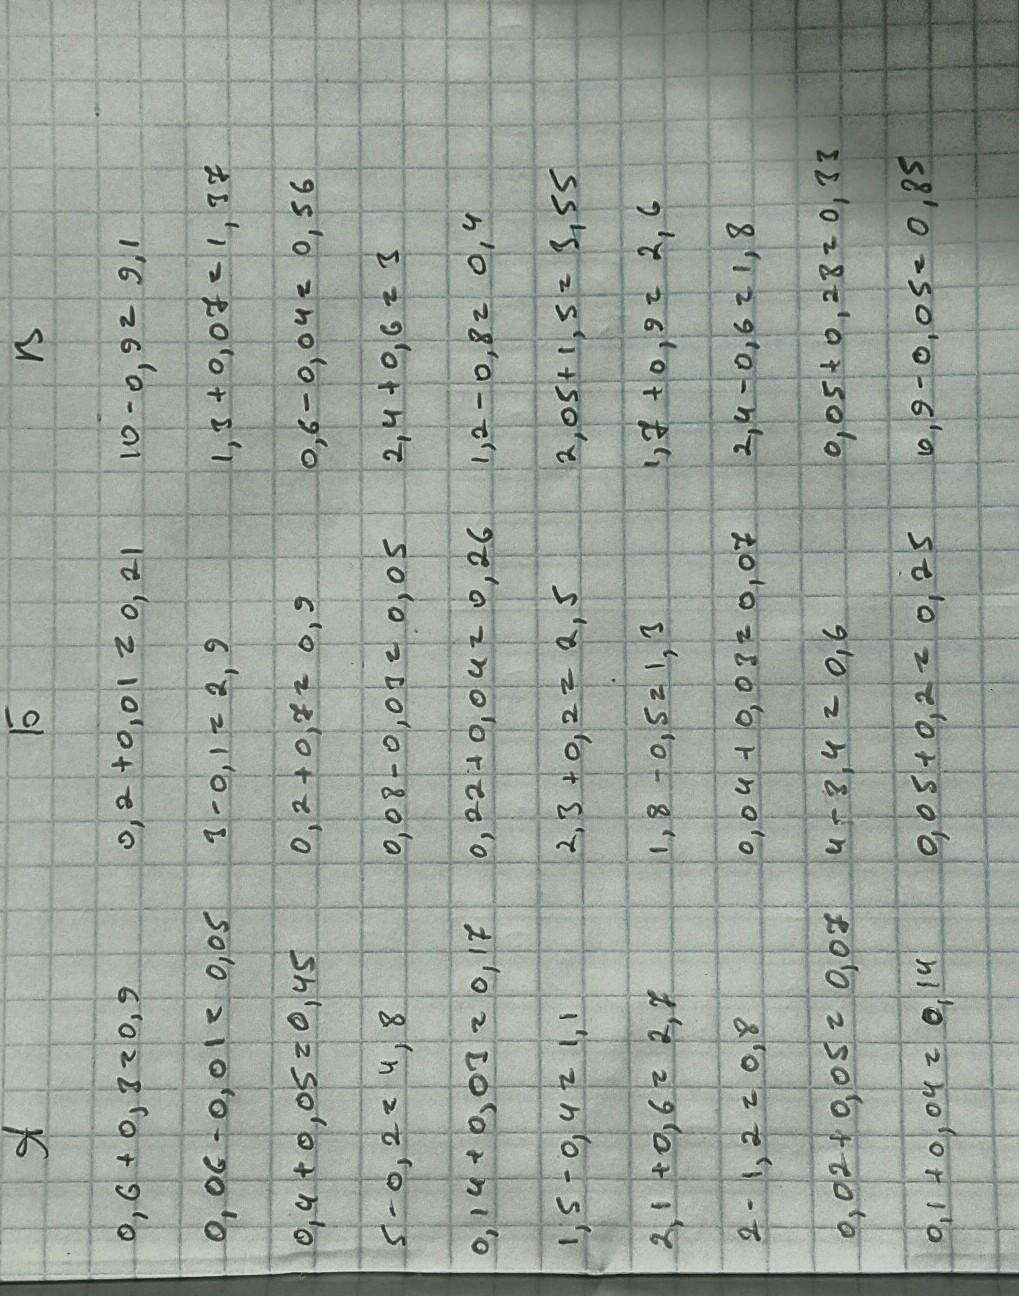 А Б В
0,6+0,3=0,9 0,2+0,01=0,21 10-0,9=9,1
0,06-0,01=0,05 3-0,1=2,9 1,3+0,07=1,37
0,4+0,05=0,45 0,2+0,7=0,9 0,6-0,04=0,56
5-0,2=4,8 0,08-0,03=0,05 2,4+0,6=3
0,14+0,03=0,17 0,22+0,04=0,26 1,2-0,8=0,4
1,5-0,4=1,1 2,3+0,2=2,5 2,05+1,5=3,55
2,1+0,6=2,7 1,8-0,5=1,3 1,7+0,9=2,6
2-1,2=0,8 0,04+0,03=0,07 2,4-0,6=1,8
0,02+0,05=0,07 4-3,4=0,6 0,05+0,28=0,33
0,1+0,04=0,14 0,05+0,2=0,25 0,9-0,05=0,85